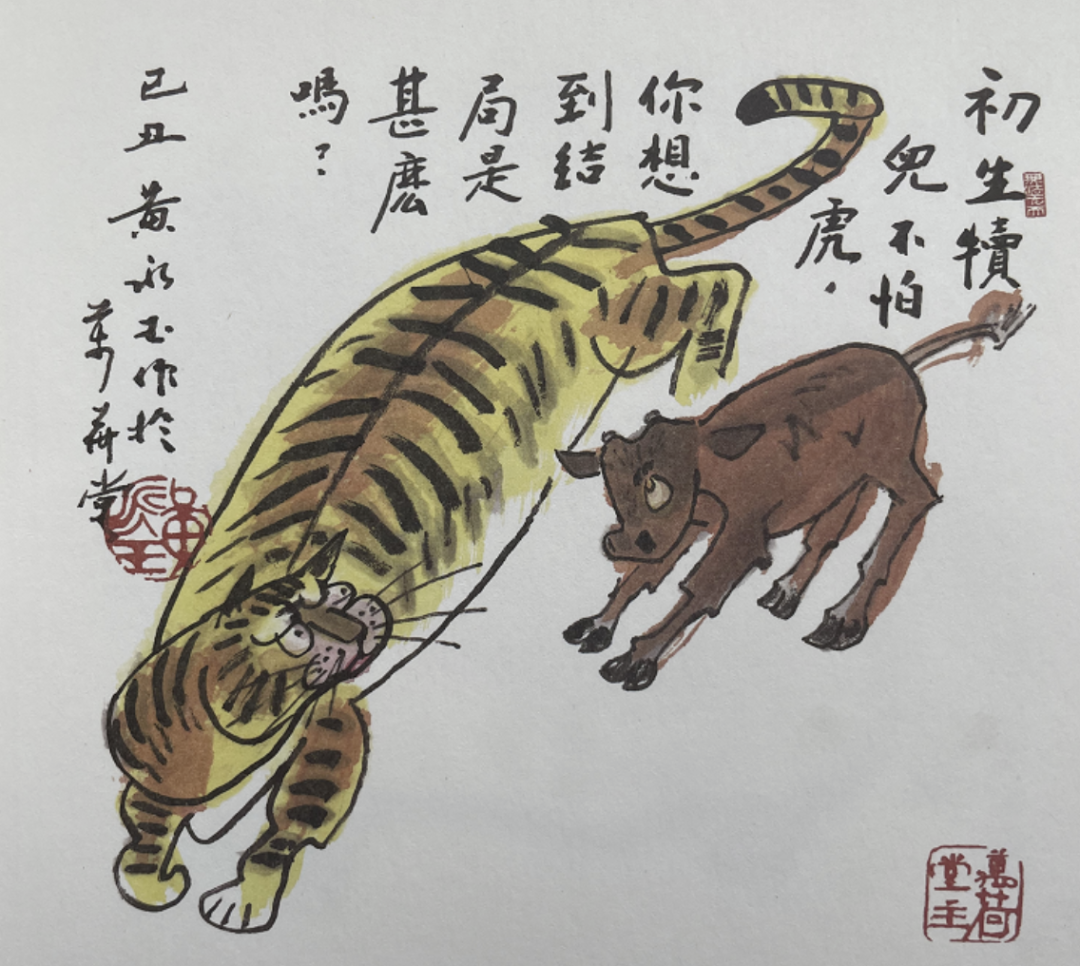 初生犢
兒不怕
虎．
你想
到結
局是
甚麽
嗎？
己丑 黃永玉作於
萬荷堂
黃永玉
萬荷堂主